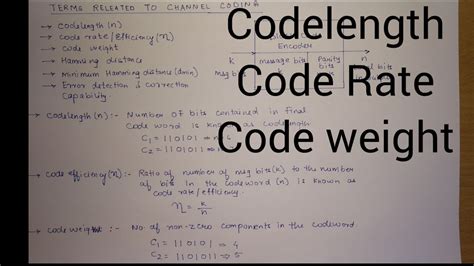 TERMS RELEATED TO CHANNEL CODING
→ Codelength (n)
→ Code rate/Efficiency (η)
→ Code weight
→ Hamming distance
→ Minimum Hamming distance (dmin)
→ Error detection & correction
Capability.
Encoder
k message bits Parity bits n
Codelength
Code Rate
Code weight
→ Codelength (n) :- Number of bits contained in final
Code word is known as codelength
C1 = 110101 ⇒
C2 = 111011 ⇒
→ Code efficiency (η) :- Ratio of number of msg bits (k) to the number
of bits in the codeword (n) is known as
code rate/efficiency.
η = k/n
→ code weight :- No of non-zero components in the codeword.
C1 = 110101 ⇒ 4
C2 = 111011 ⇒ 5